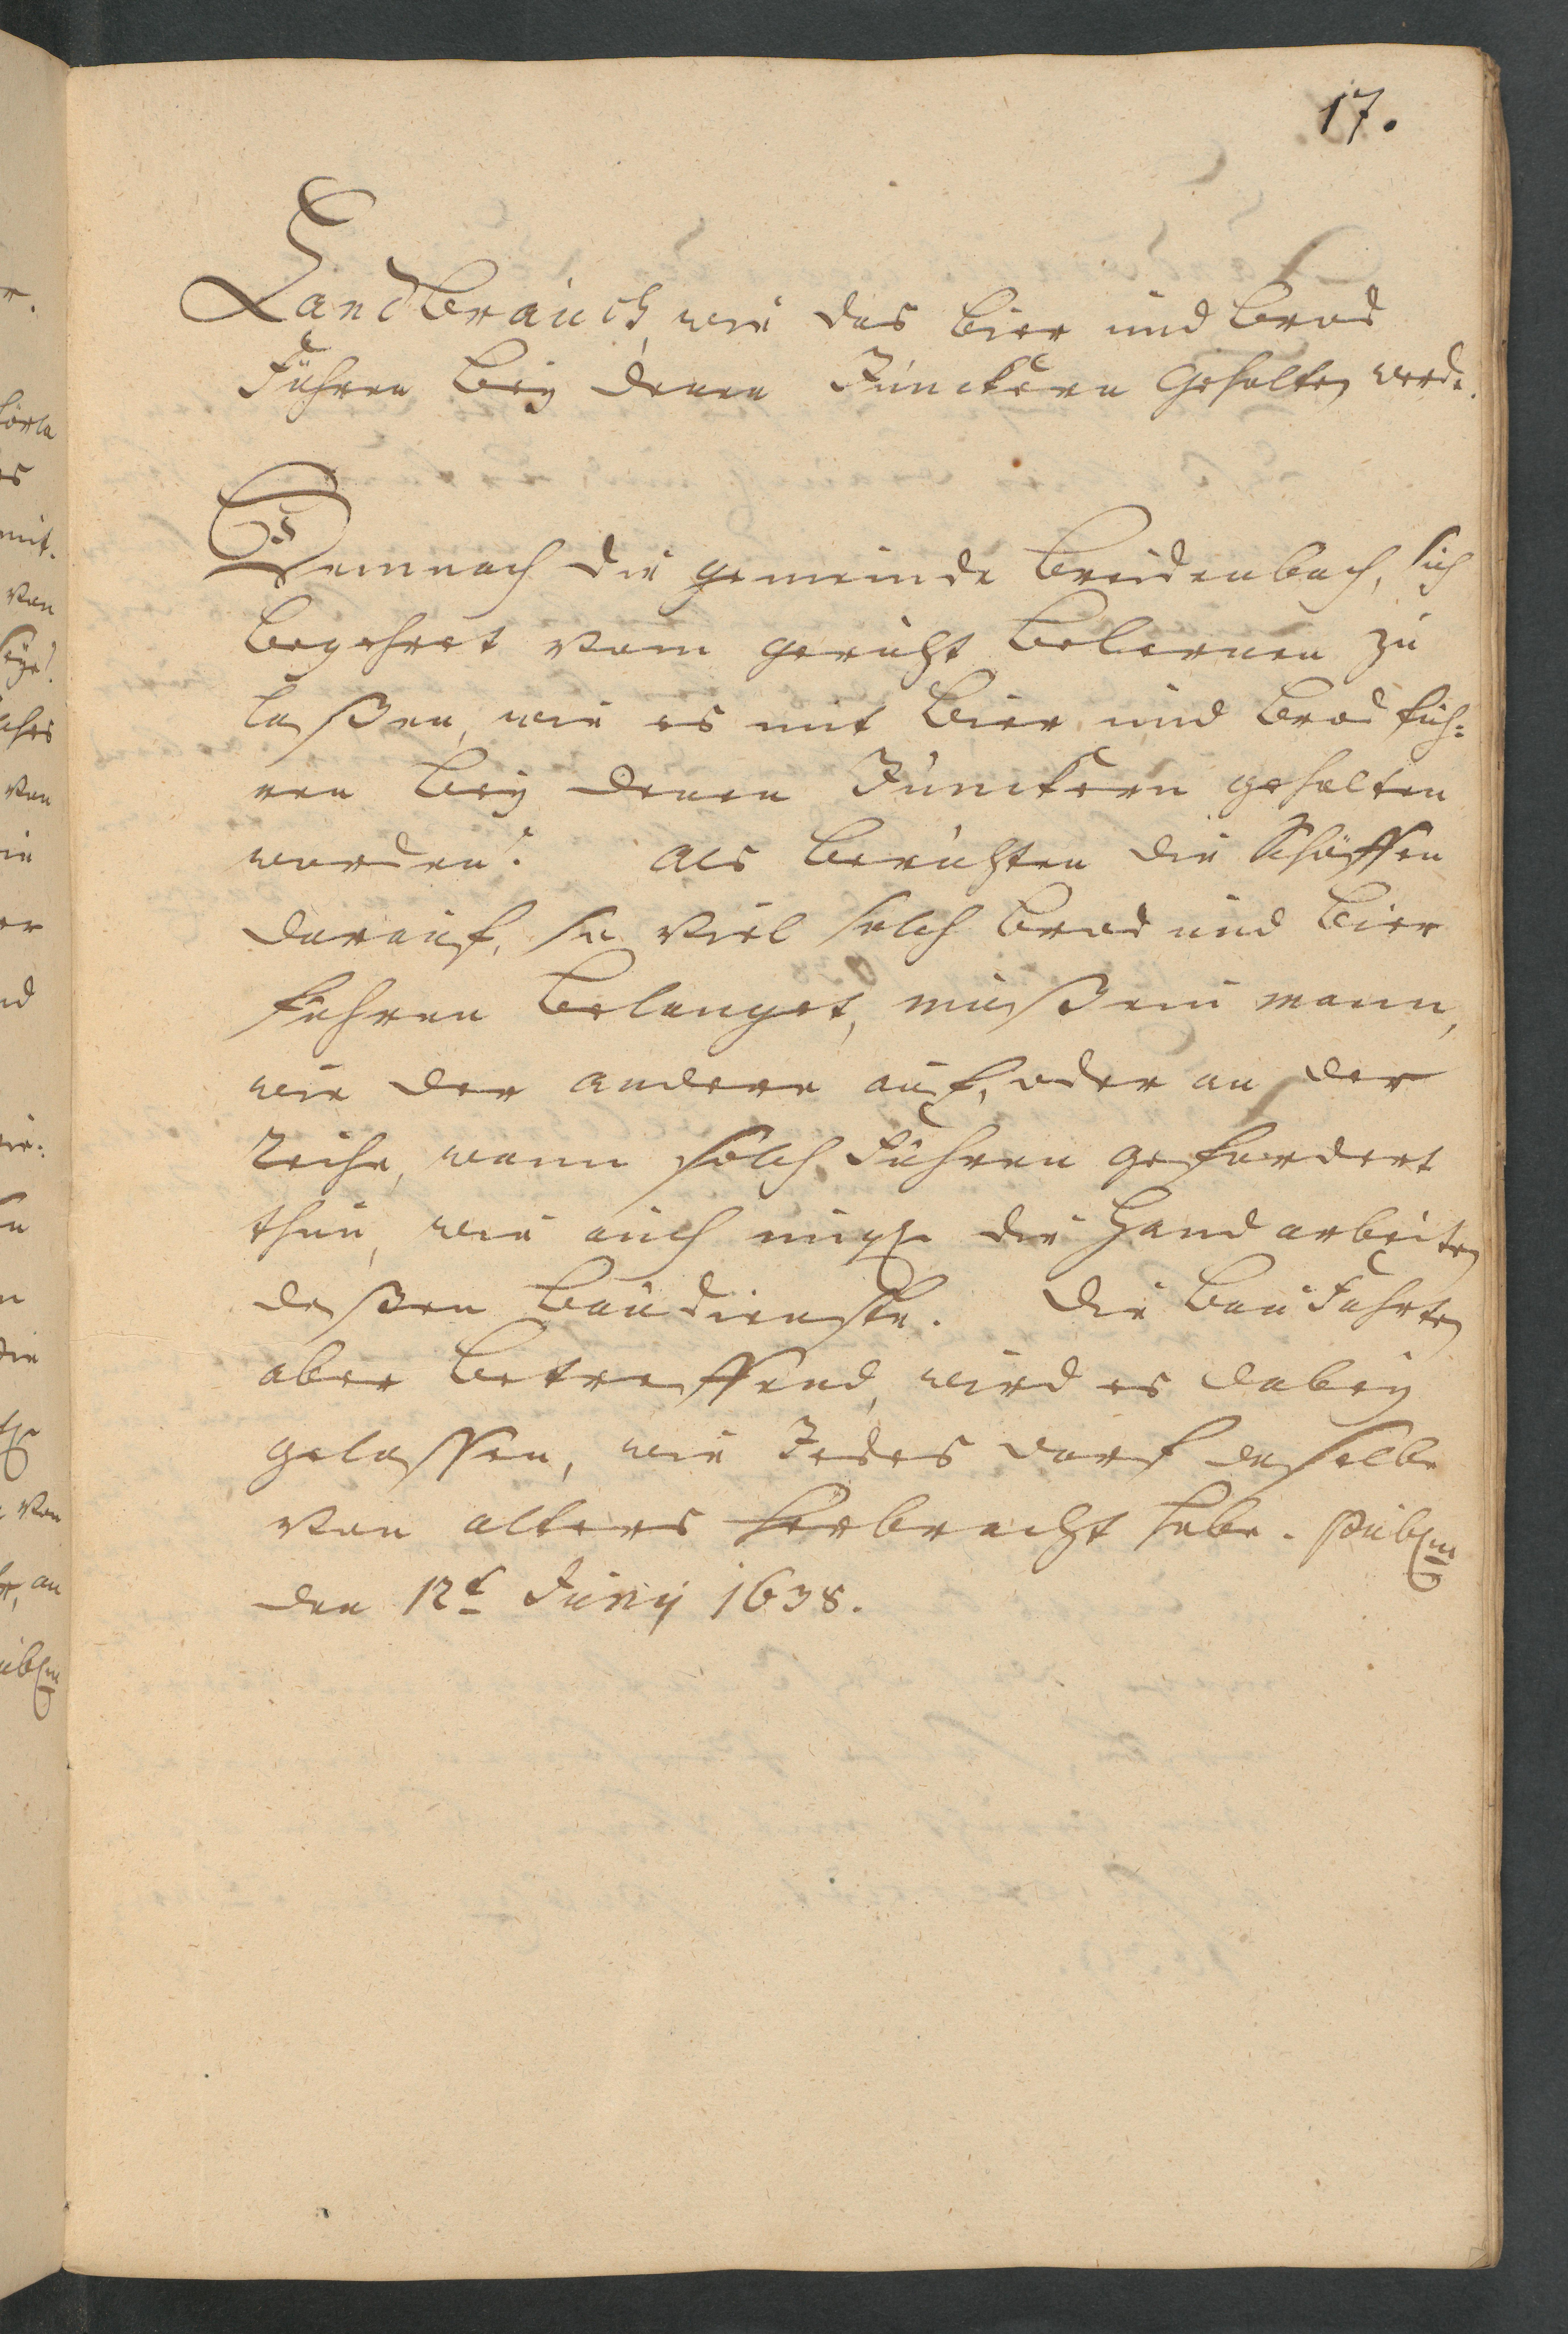 17.
Landbrauch, wie das Bier und Brod
Führen bey denen Junckern Gehalten werde.
Demnach die gemeinde Breidenbach, sich
begehret vom gericht belernen zu
laßen, wie es mit Bier und Brod füh=
ren bey denen Junckern gehalten
worden? Als berichten die Schöffen
darauf, so viel solch Brod und Bier
führen belanget, müß ein mann,
wie der andere auf, oder an der
Reihe, wann solch Führen gefordert
thun, wie auch die Handarbeiten
deßen Baudienste. Die Bau Fuhrten
aber betreffend, wird es dabey
gelassen, wie Jedes dorf daselbe
von alters herbracht habe. Publm
den 12t Juny 1638.